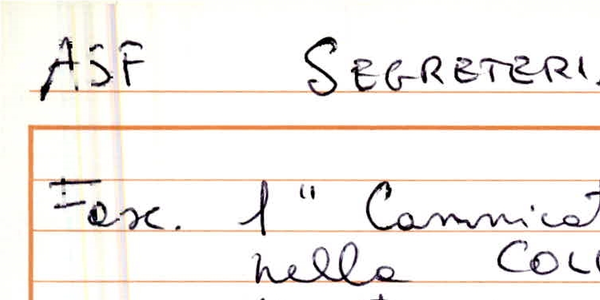 ASF SEGRETERI
Fasc. 1" Comunicat
nella COLL